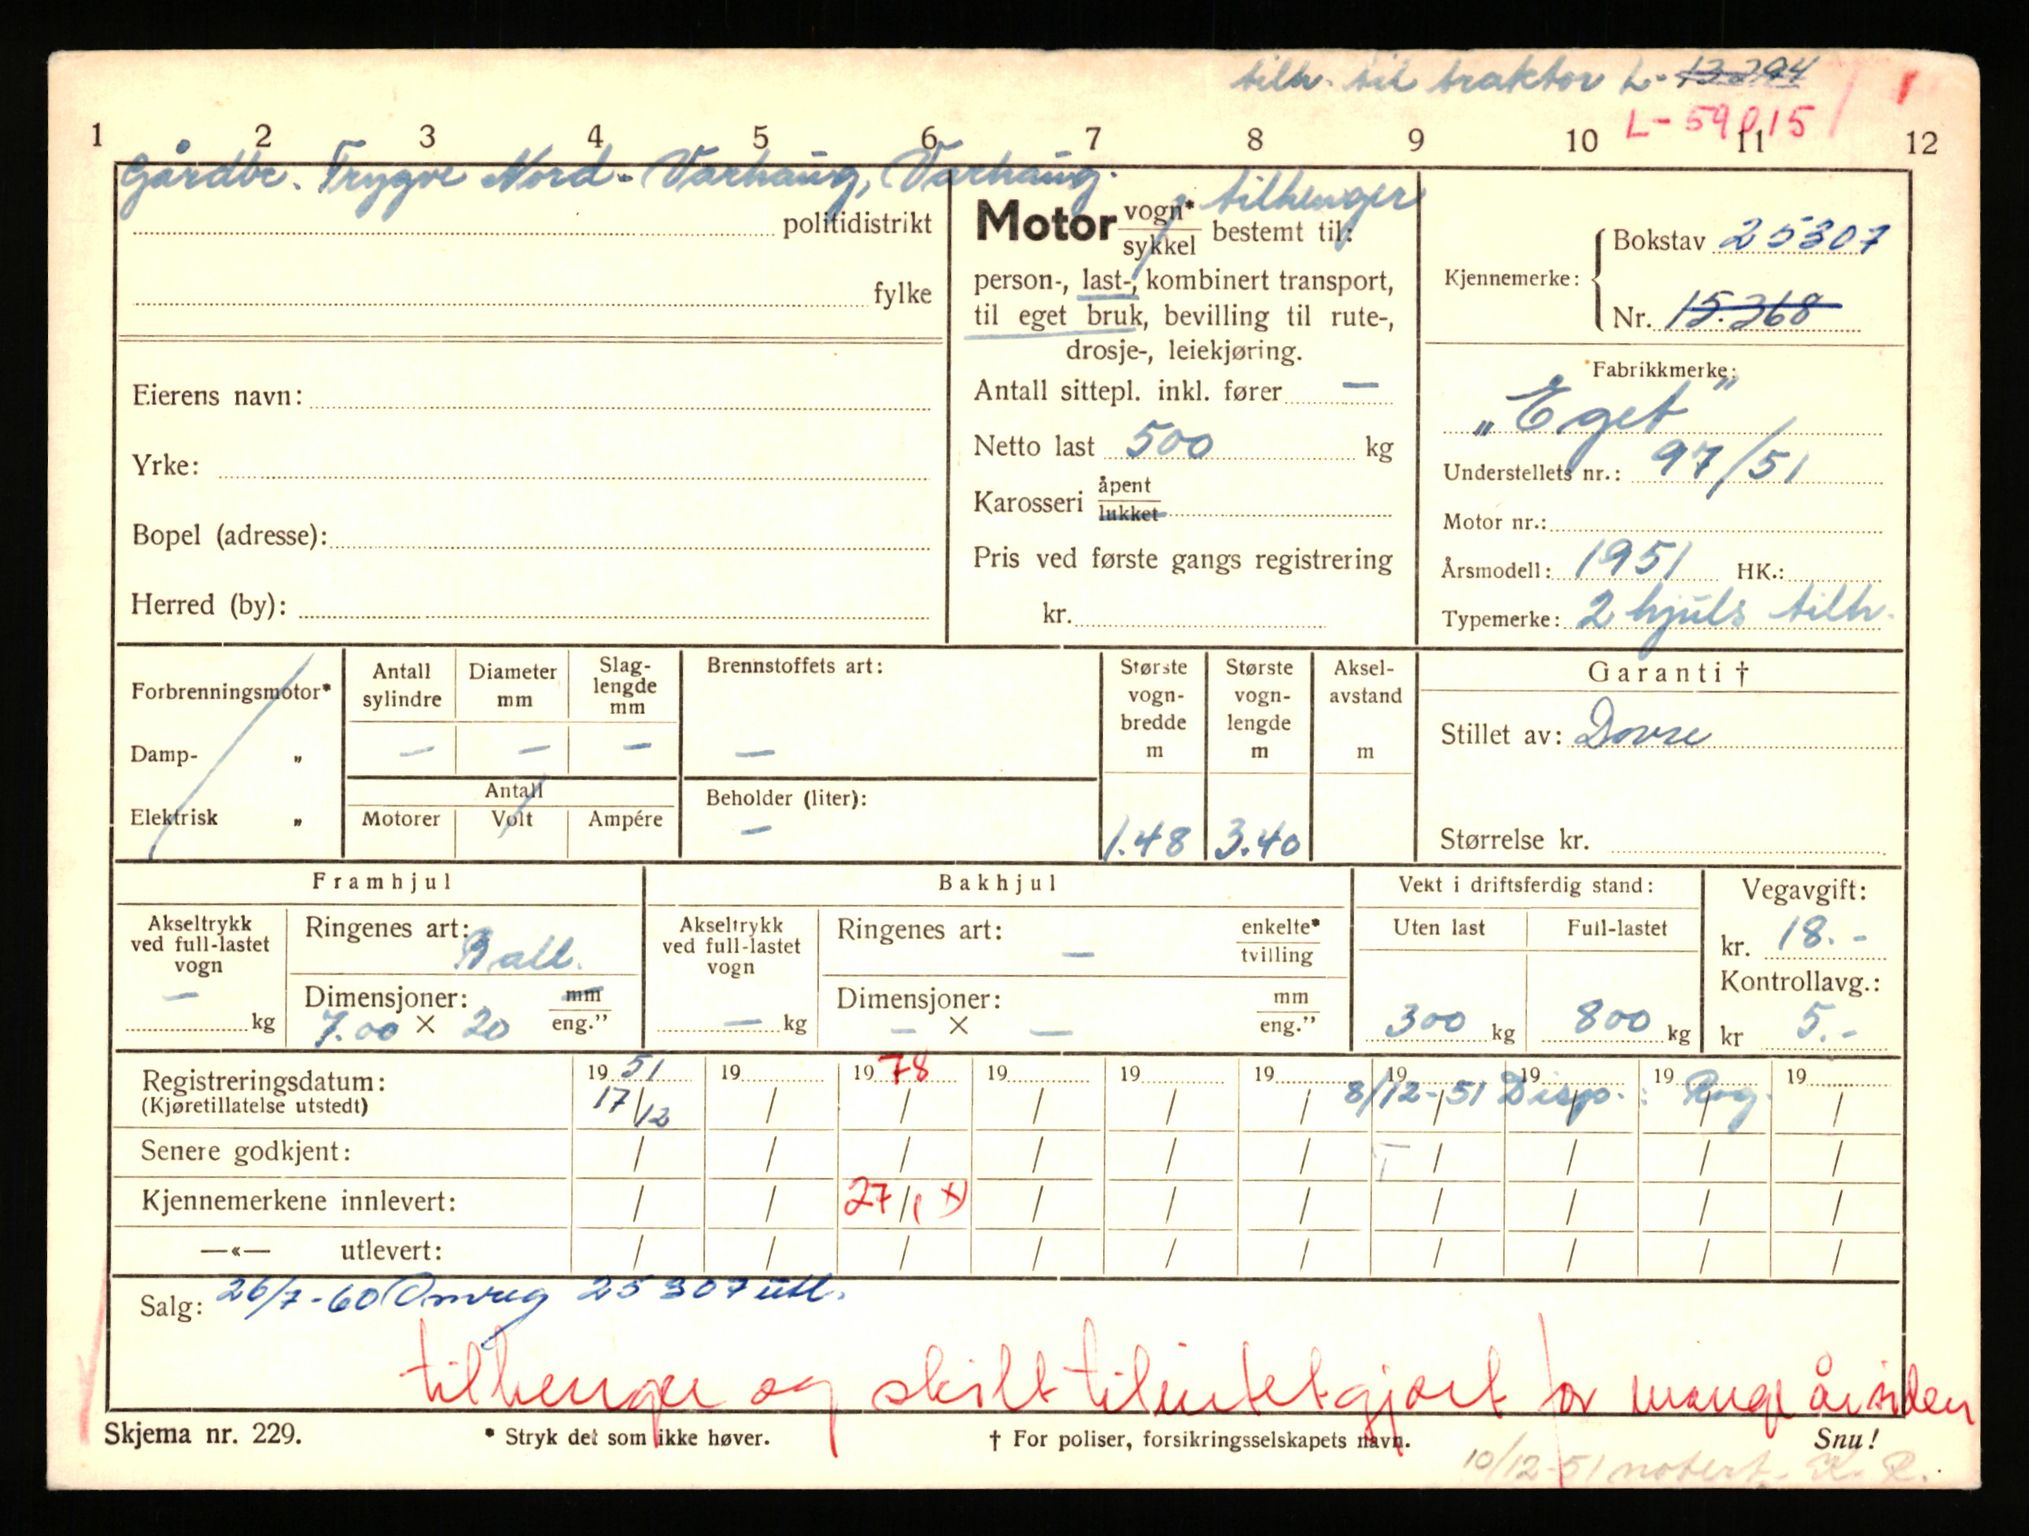 tilh. til traktor L-13294
L-59015
1 2 3 4 5 6 7 8 9 10 11 12
Gårdbr. Trygve Nord-Varhaug, Varhaug.
politidistrikt
fylke
Eierens navn:
Yrke:
Bopel (adresse):
Herred (by):
tilhenger
Motor vogn* / sykkel bestemt til:
person-, last-, kombinert transport,
til eget bruk, bevilling til rute-,
drosje-, leiekjøring.
Antall sittepl. inkl. fører —
Netto last 500 kg
Karosseri åpent / lukket
Pris ved første gangs registrering
kr.
Kjennemerke: Bokstav 25307
Nr. 15.368
Fabrikkmerke:
„Eget”
Understellets nr.: 97/51
Motor nr.:
Årsmodell: 1951 HK.:
Typemerke: 2 hjuls tilh.
Forbrenningsmotor*
Damp- „
Elektrisk „
Antall sylindre —
Diameter mm —
Slag-lengde mm —
Antall
Motorer Volt Ampére
Brennstoffets art: —
Beholder (liter): —
Største vogn-bredde m 1.48
Største vogn-lengde m 3.40
Aksel-avstand m
Garanti †
Stillet av: Dovre
Størrelse kr.
Framhjul
Akseltrykk ved full-lastet vogn — kg
Ringenes art: Ball.
Dimensjoner: mm / eng.”
7.00 × 20
Bakhjul
Akseltrykk ved full-lastet vogn — kg
Ringenes art: — enkelte* / tvilling
Dimensjoner: mm / eng.”
— × —
Vekt i driftsferdig stand:
Uten last Full-lastet
300 kg 800 kg
Vegavgift:
kr. 18.-
Kontrollavg.:
kr 5.-
Registreringsdatum: 19 51 19 19 78 19 19 19 19 19 19 19
(Kjøretillatelse utstedt) 17/12 8/12-51 Disp.: Rog.
Senere godkjent:
Kjennemerkene innlevert: 27/1 x)
—«— utlevert:
Salg: 26/7-60 Omreg 25307 utl.
tilhenger og skilt tilintetgjort for mange år siden
Skjema nr. 229. * Stryk det som ikke høver. † For poliser, forsikringsselskapets navn. Snu!
10/12-51 notert. K. R.